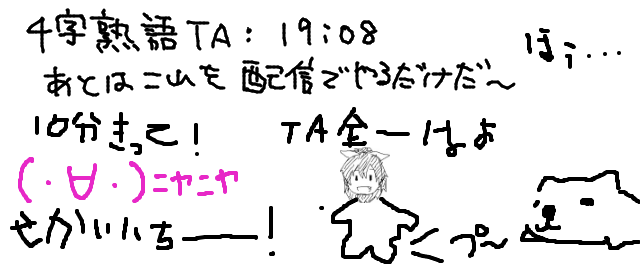 4字熟語TA: 19:08
ほぅ...
あとはこれを配信でやるだけだ〜
10分きって!
TA全一はよ
(・∀・)ニヤニヤ
せかいいちーー!
プ〜